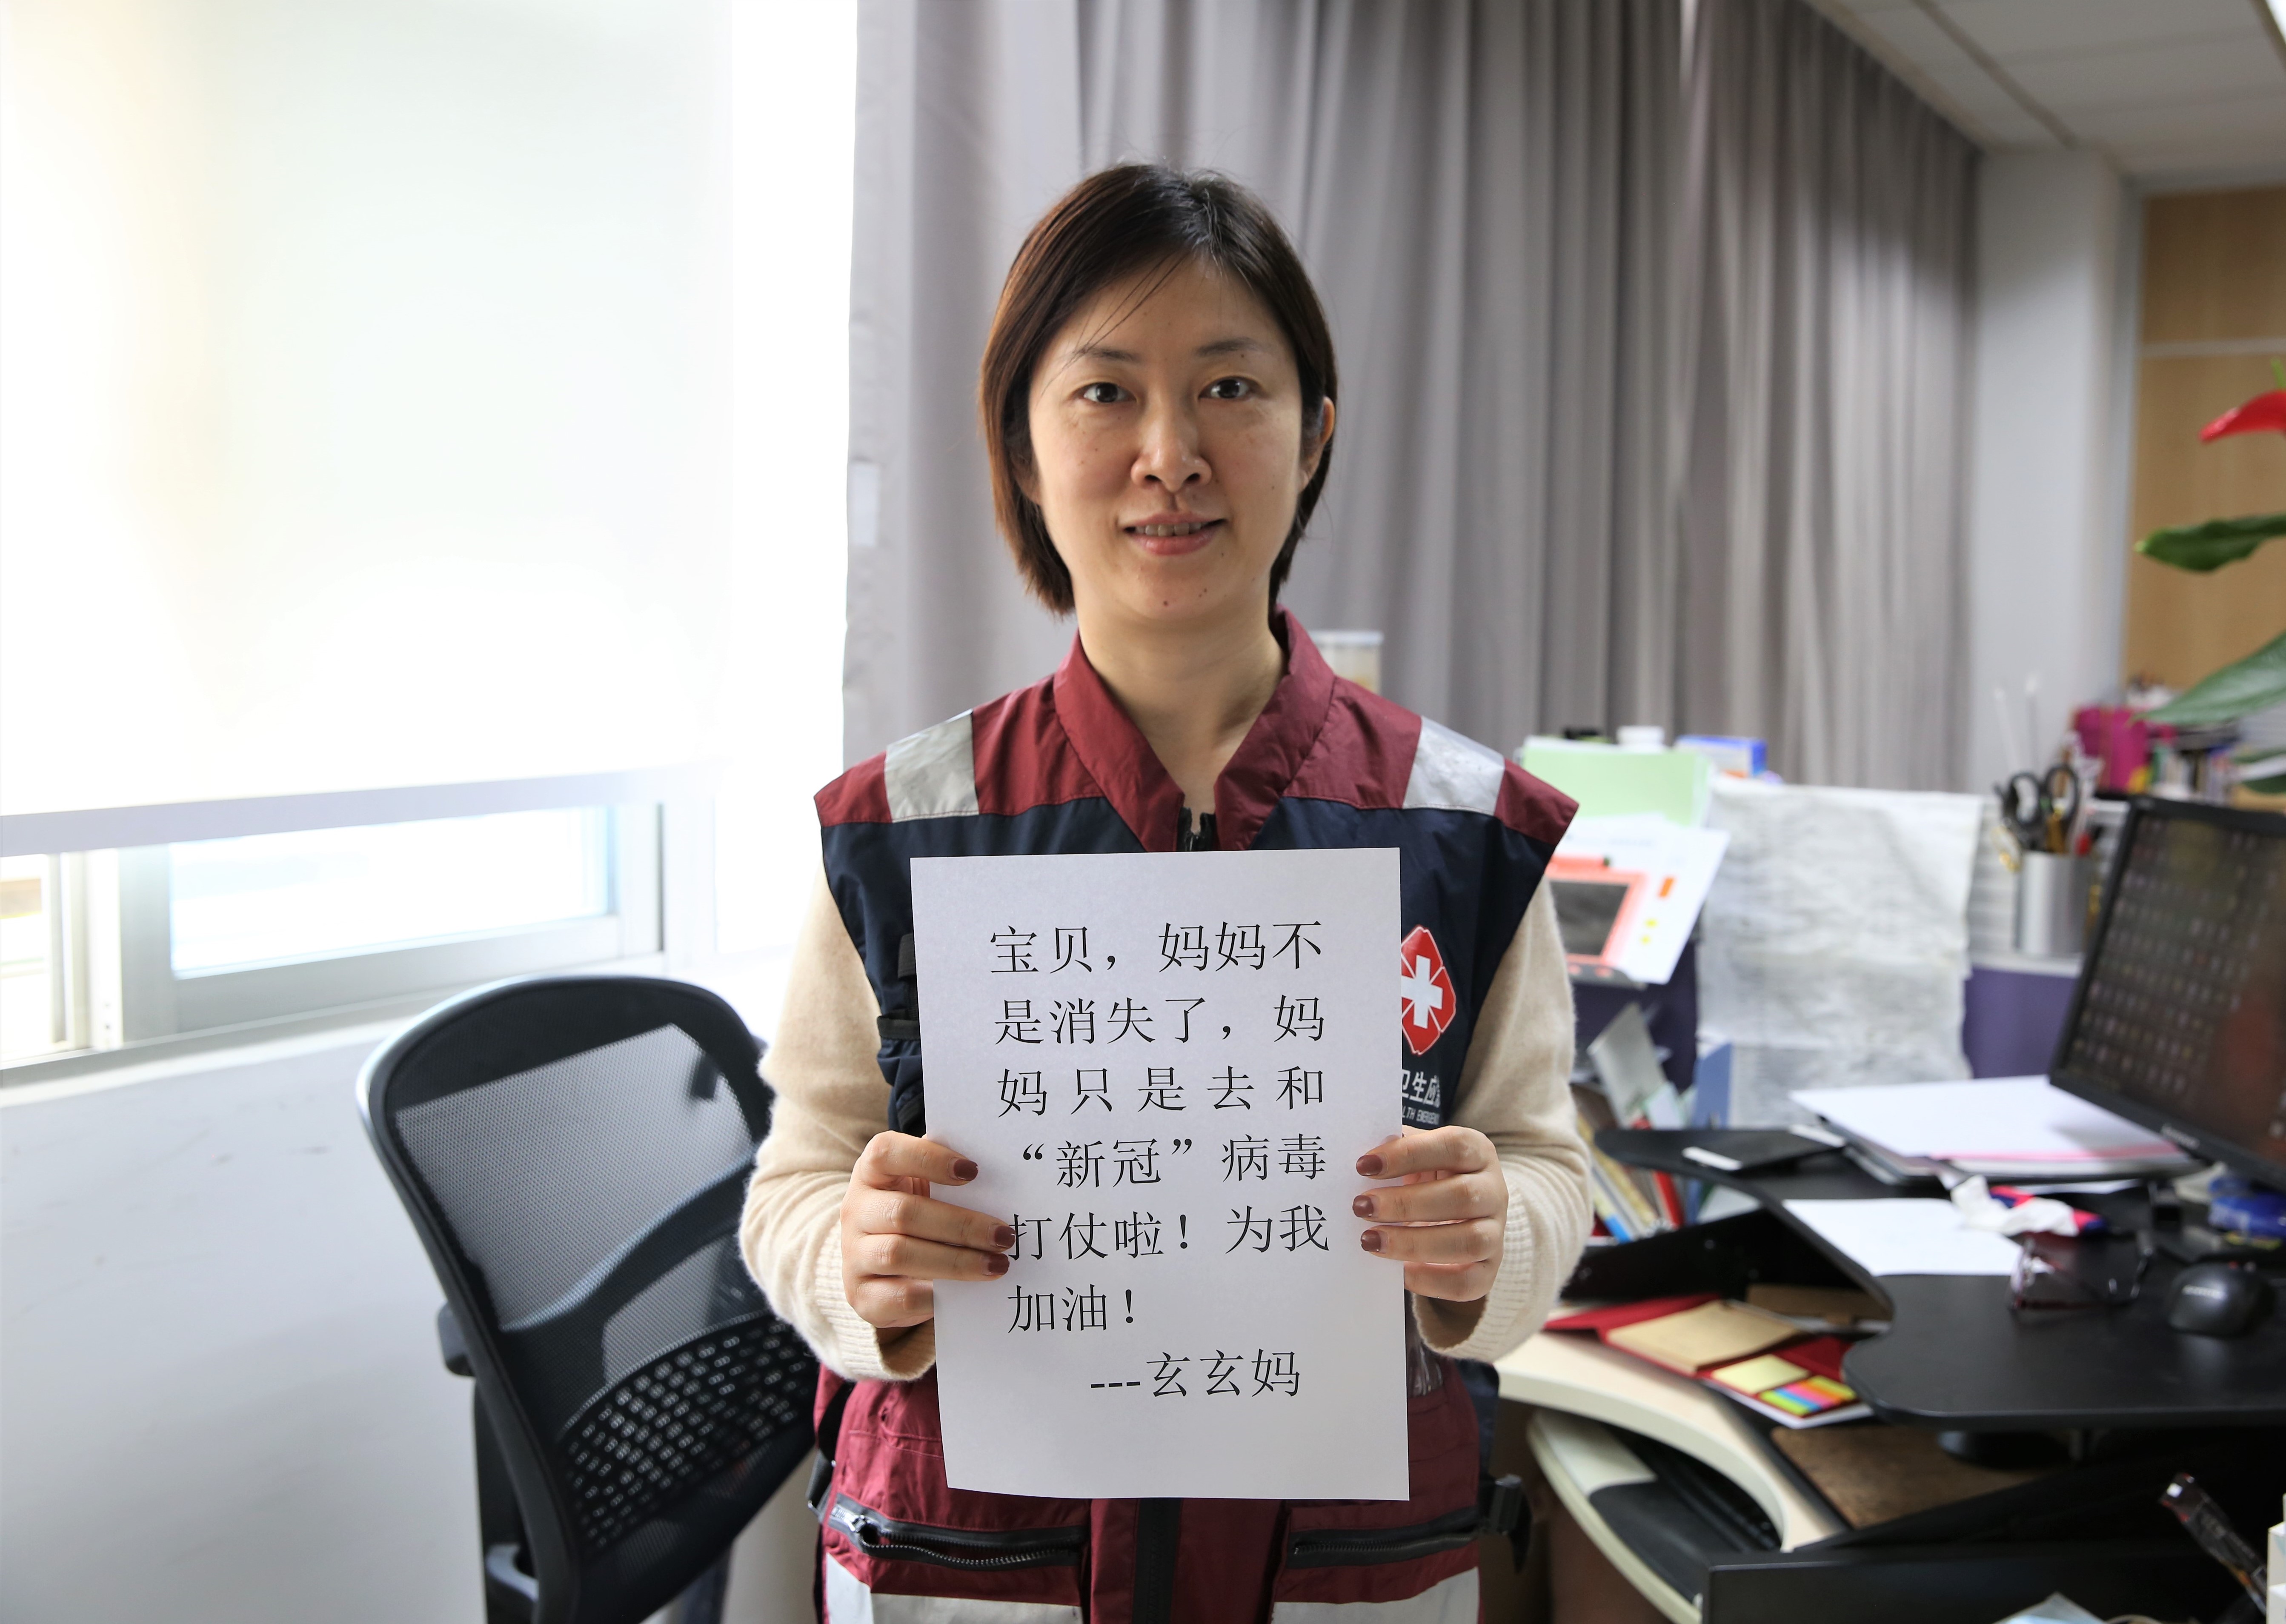 宝贝，妈妈不
是消失了，妈
妈只是去和
“新冠”病毒
打仗啦！为我
加油！
---玄玄妈
卫生应
LTH EMERGENC